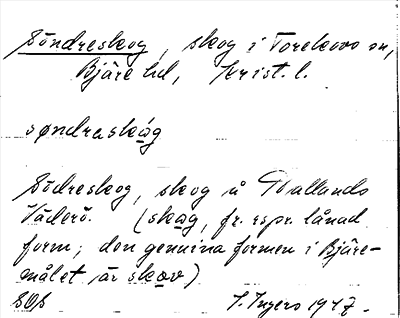 Söndreskog, skog i Torekovs sn,
Bjäre hd, Krist. l.
søndreskåg
Södreskog, skog å Hallands
Väderö. (skåg, fr. rspr. lånad
form; den genuina formen i Bjäre-
målet är skov)
SOB I. Ingers 1947.